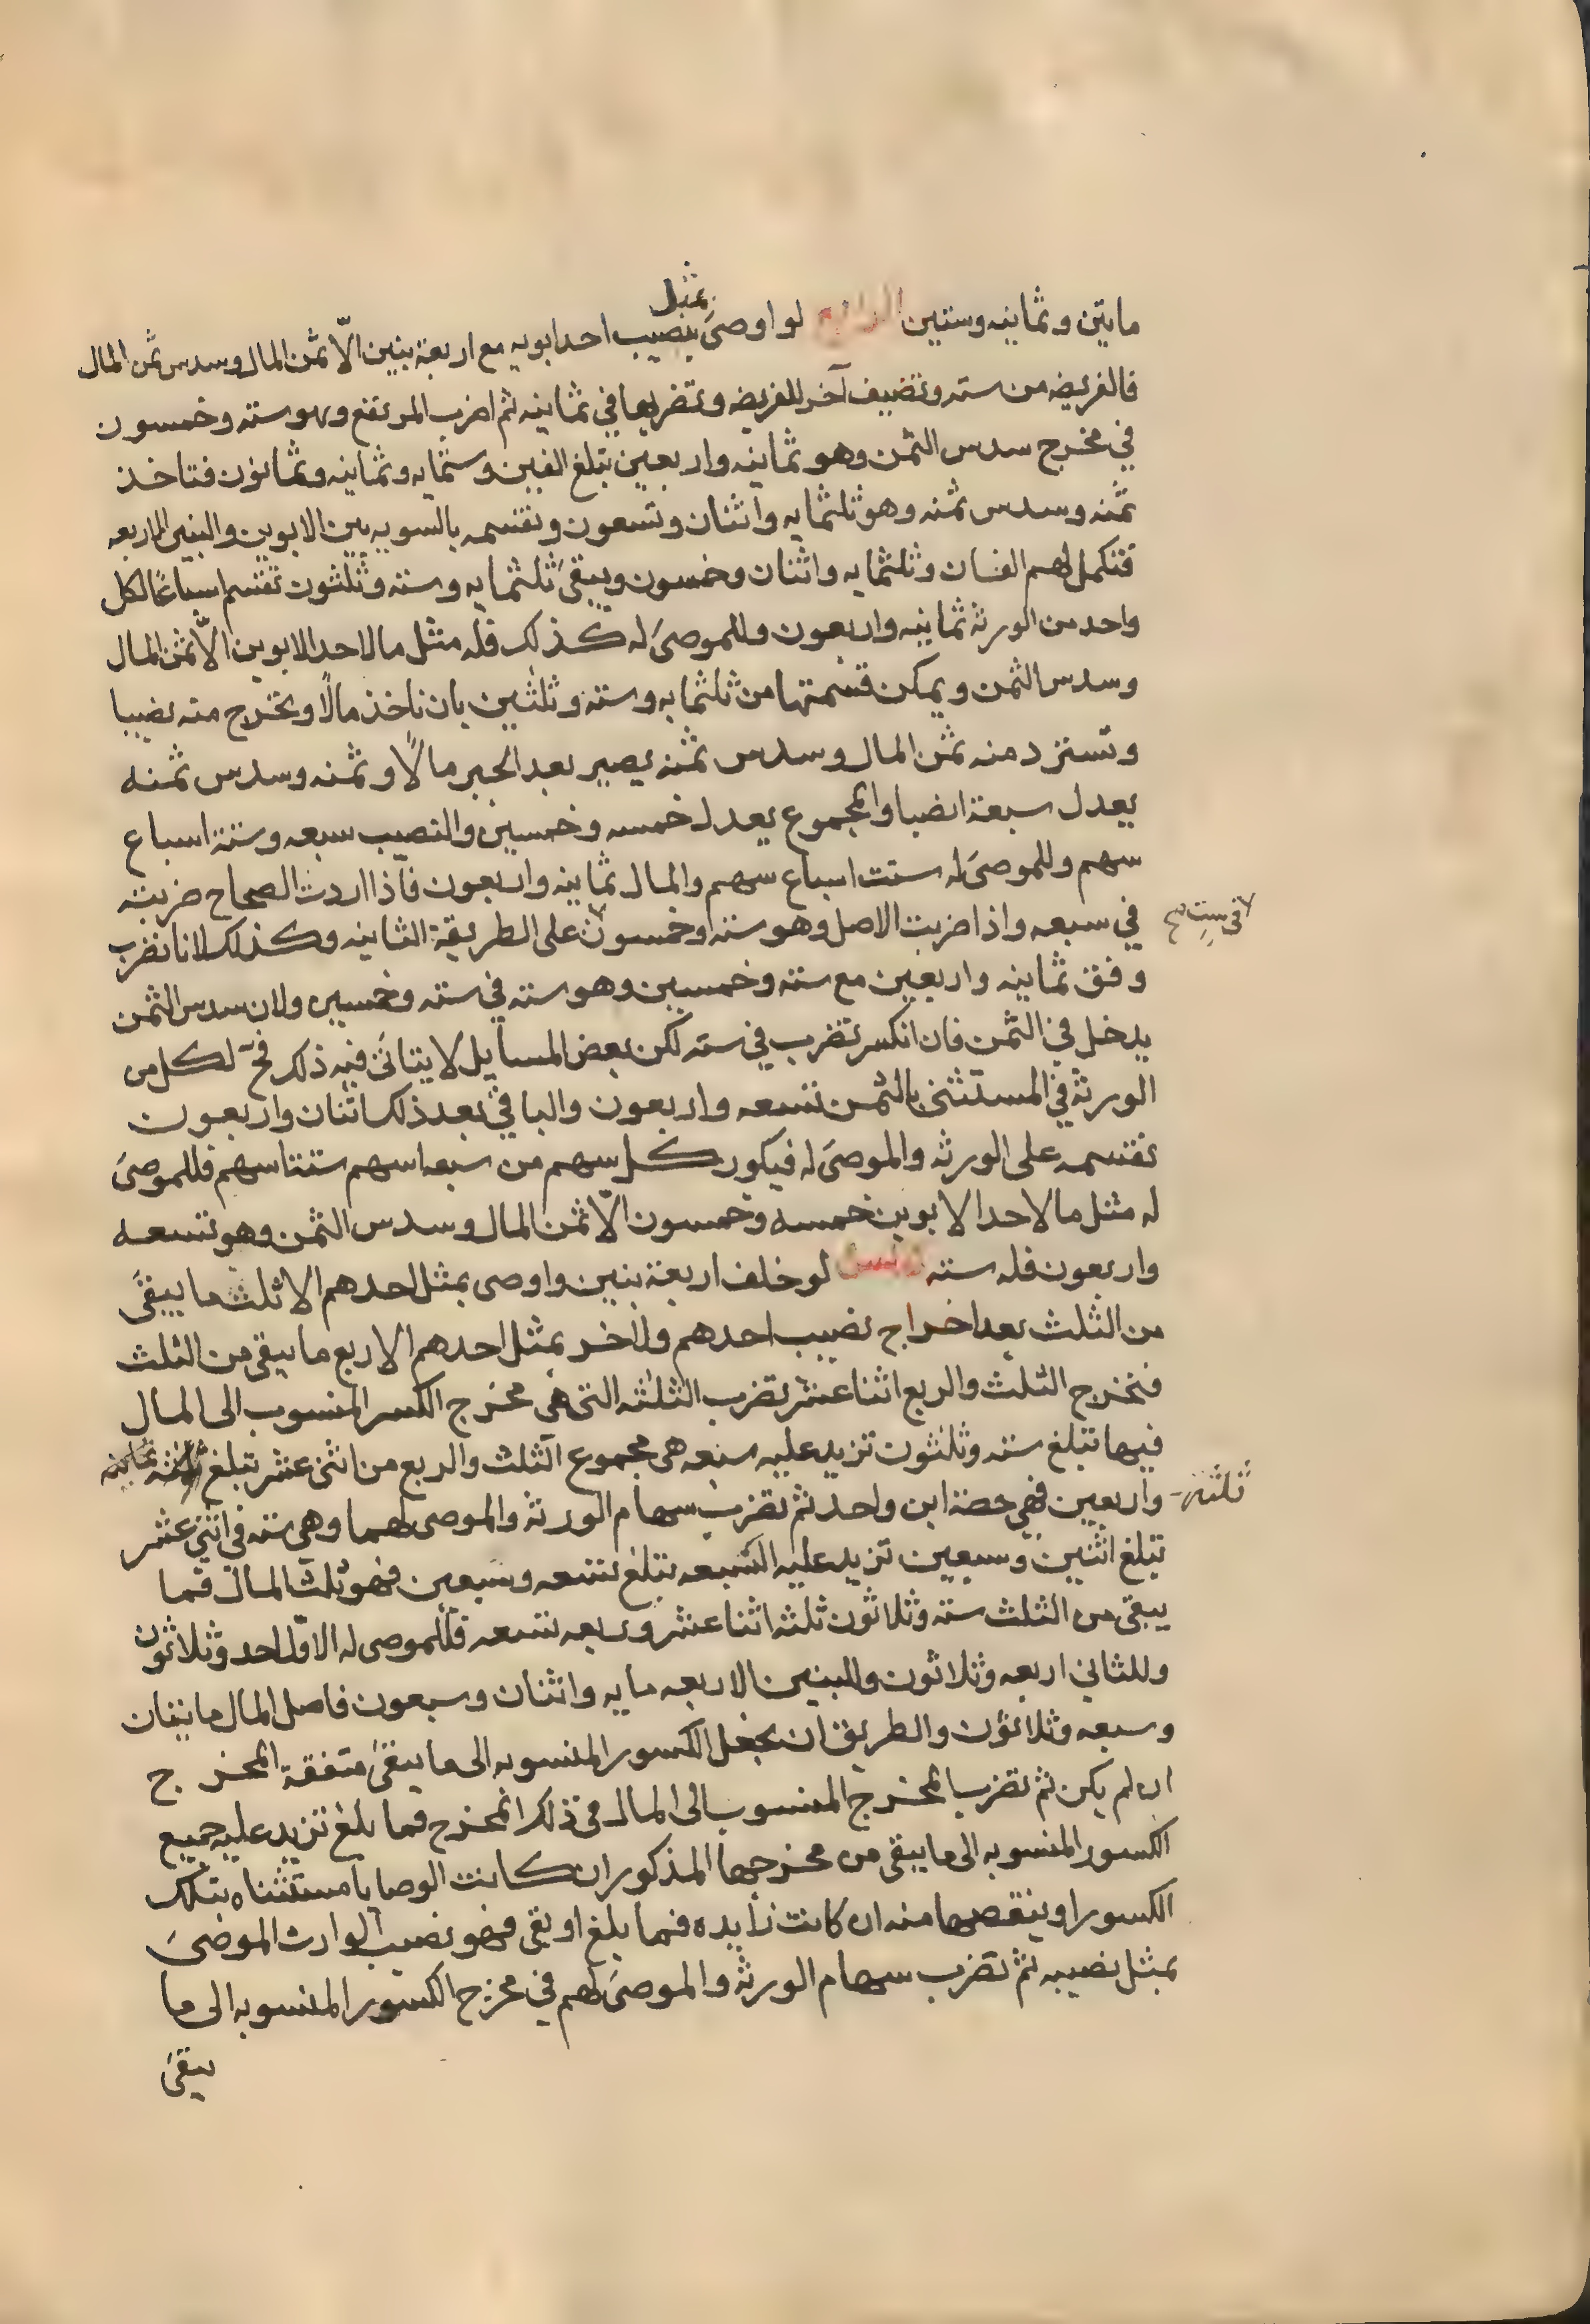 بمثل
مايتين وثمانيه وستين الرابع لو اوصى بنصيب احد ابويه مع اربعة بنين الّا ثمن المال وسدس ثمن المال
فالفريضه من سته وتضيف آخر للفريضه وتضربها في ثمانيه ثم اضرب المرتفع وهو سته وخمسون
في مخرج سدس الثمن وهو ثمانيه واربعين تبلغ الفين وستمايه وثمانيه وثمانون فتاخذ
ثمنه وسدس ثمنه وهو ثلثمايه واثنان وتسعون وتقسمه بالسويه بين الابوين والبنين الاربعه
فتكمل لهم الفان وثلثمايه واثنان وخمسون ويبقى ثلثمايه وسته وثلثون تقسم اسباعًا لكل
واحد من الورثه ثمانيه واربعون وللموصى له كذلك فله مثل ما لاحد الابوين الّا ثمن المال
وسدس الثمن ويمكن قسمتها من ثلثمايه وسته وثلثين بان ناخذ مالًا ويخرج منه نصيبا
وتسترد منه ثمن المال وسدس ثمنه يصير بعد الجبر مالًا وثمنه وسدس ثمنه
يعدل سبعة انصبا والمجموع يعدل خمسه وخمسين والنصيب سبعه وستة اسباع
سهم وللموصى له ستت اسباع سهم والمال ثمانيه واربعون فاذا اردت الصحاح ضربته
في سبعه واذا ضربت الاصل وهو سته وخمسون على الطريقة الثانيه وكذلك لانا نضرب
لا في ست
وفق ثمانيه واربعين مع سته وخمسين وهو سته في سته وخمسين ولان سدس الثمن
يدخل في الثمن فان انكسر تضرب في سته لكن بعض المسايل لا يتاتى فيه ذلك فح لكل من
الورثه في المستثنى بالثمن تسعه واربعون والباقي بعد ذلك اثنان واربعون
تقسمه على الورثه والموصى له فيكون كل سهم من سبعه اسهم ستتا سهم فللموصى
له مثل ما لاحد الابوين خمسه وخمسون الّا ثمن المال وسدس الثمن وهو تسعه
واربعون فله سته لو خلف اربعة بنين واوصى بمثل احدهم الا ثلث ما يبقى
من الثلث بعد اخراج نصيب احدهم ولاخر بمثل احدهم الا ربع ما يبقى من الثلث
فنخرج الثلث والربع اثنا عشر تضرب الثلثه التي هي مخرج الكسر المنسوب الى المال
فيها تبلغ سته وثلثون تزيد عليه سبعه هي مجموع الثلث والربع من اثنى عشر تبلغ ثمانيه
ثلثه
واربعين فهي حصة ابن واحد ثم تضرب سهام الورثه والموصى لهما وهي سته في اثني عشر
تبلغ اثنين وسبعين تزيد عليه السبعه تبلغ تسعه وسبعين فهو ثلث المال فما
يبقى من الثلث سته وثلاثون ثلثه اثنا عشر وربعه تسعه فللموصى له الاوّل احد وثلاثون
وللثاني اربعه وثلاثون وللبنين الاربعه مايه واثنان وسبعون فاصل المال مايتان
وسبعه وثلاثون والطريق ان يجعل الكسور المنسوبه الى ما يبقى متفقة المخرج
ان لم يكن ثم تضرب المخرج المنسوب الى المال في ذلك المخرج فما بلغ تزيد عليه جميع
الكسور المنسوبه الى ما يبقى من مخرجها المذكور ان كانت الوصايا مستثناه بتلك
الكسور او ينقصها منه ان كانت زايده فما بلغ او بقى فهو نصيب الوارث الموصى
بمثل نصيبه ثم تضرب سهام الورثه والموصى لهم في مخرج الكسور المنسوبه الى ما
يبقى